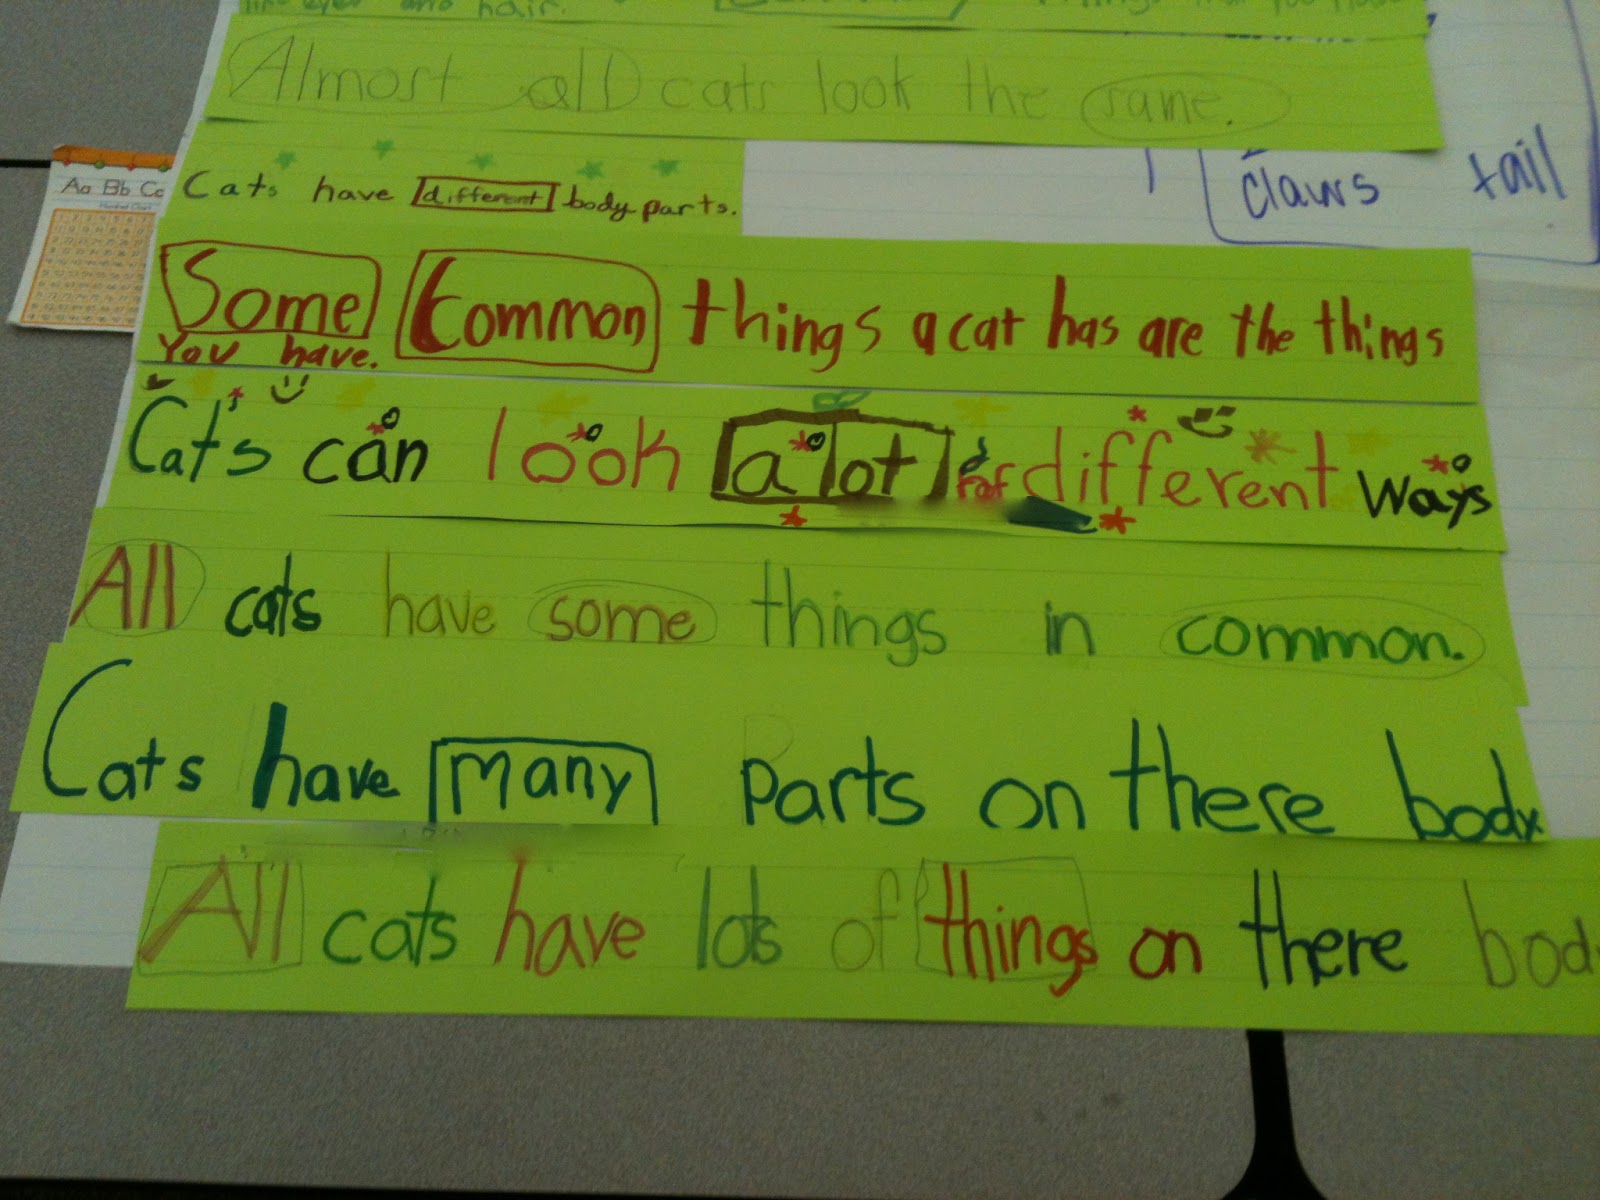 eyes and hair.
Almost all cats look the same.
claws tail
Aa Bb Cc
Cats have different body parts.
Some Common things a cat has are the things
You have.
Cat's can look a lot of different ways
All cats have some things in common.
Cats have many parts on there body.
All cats have lots of things on there bod